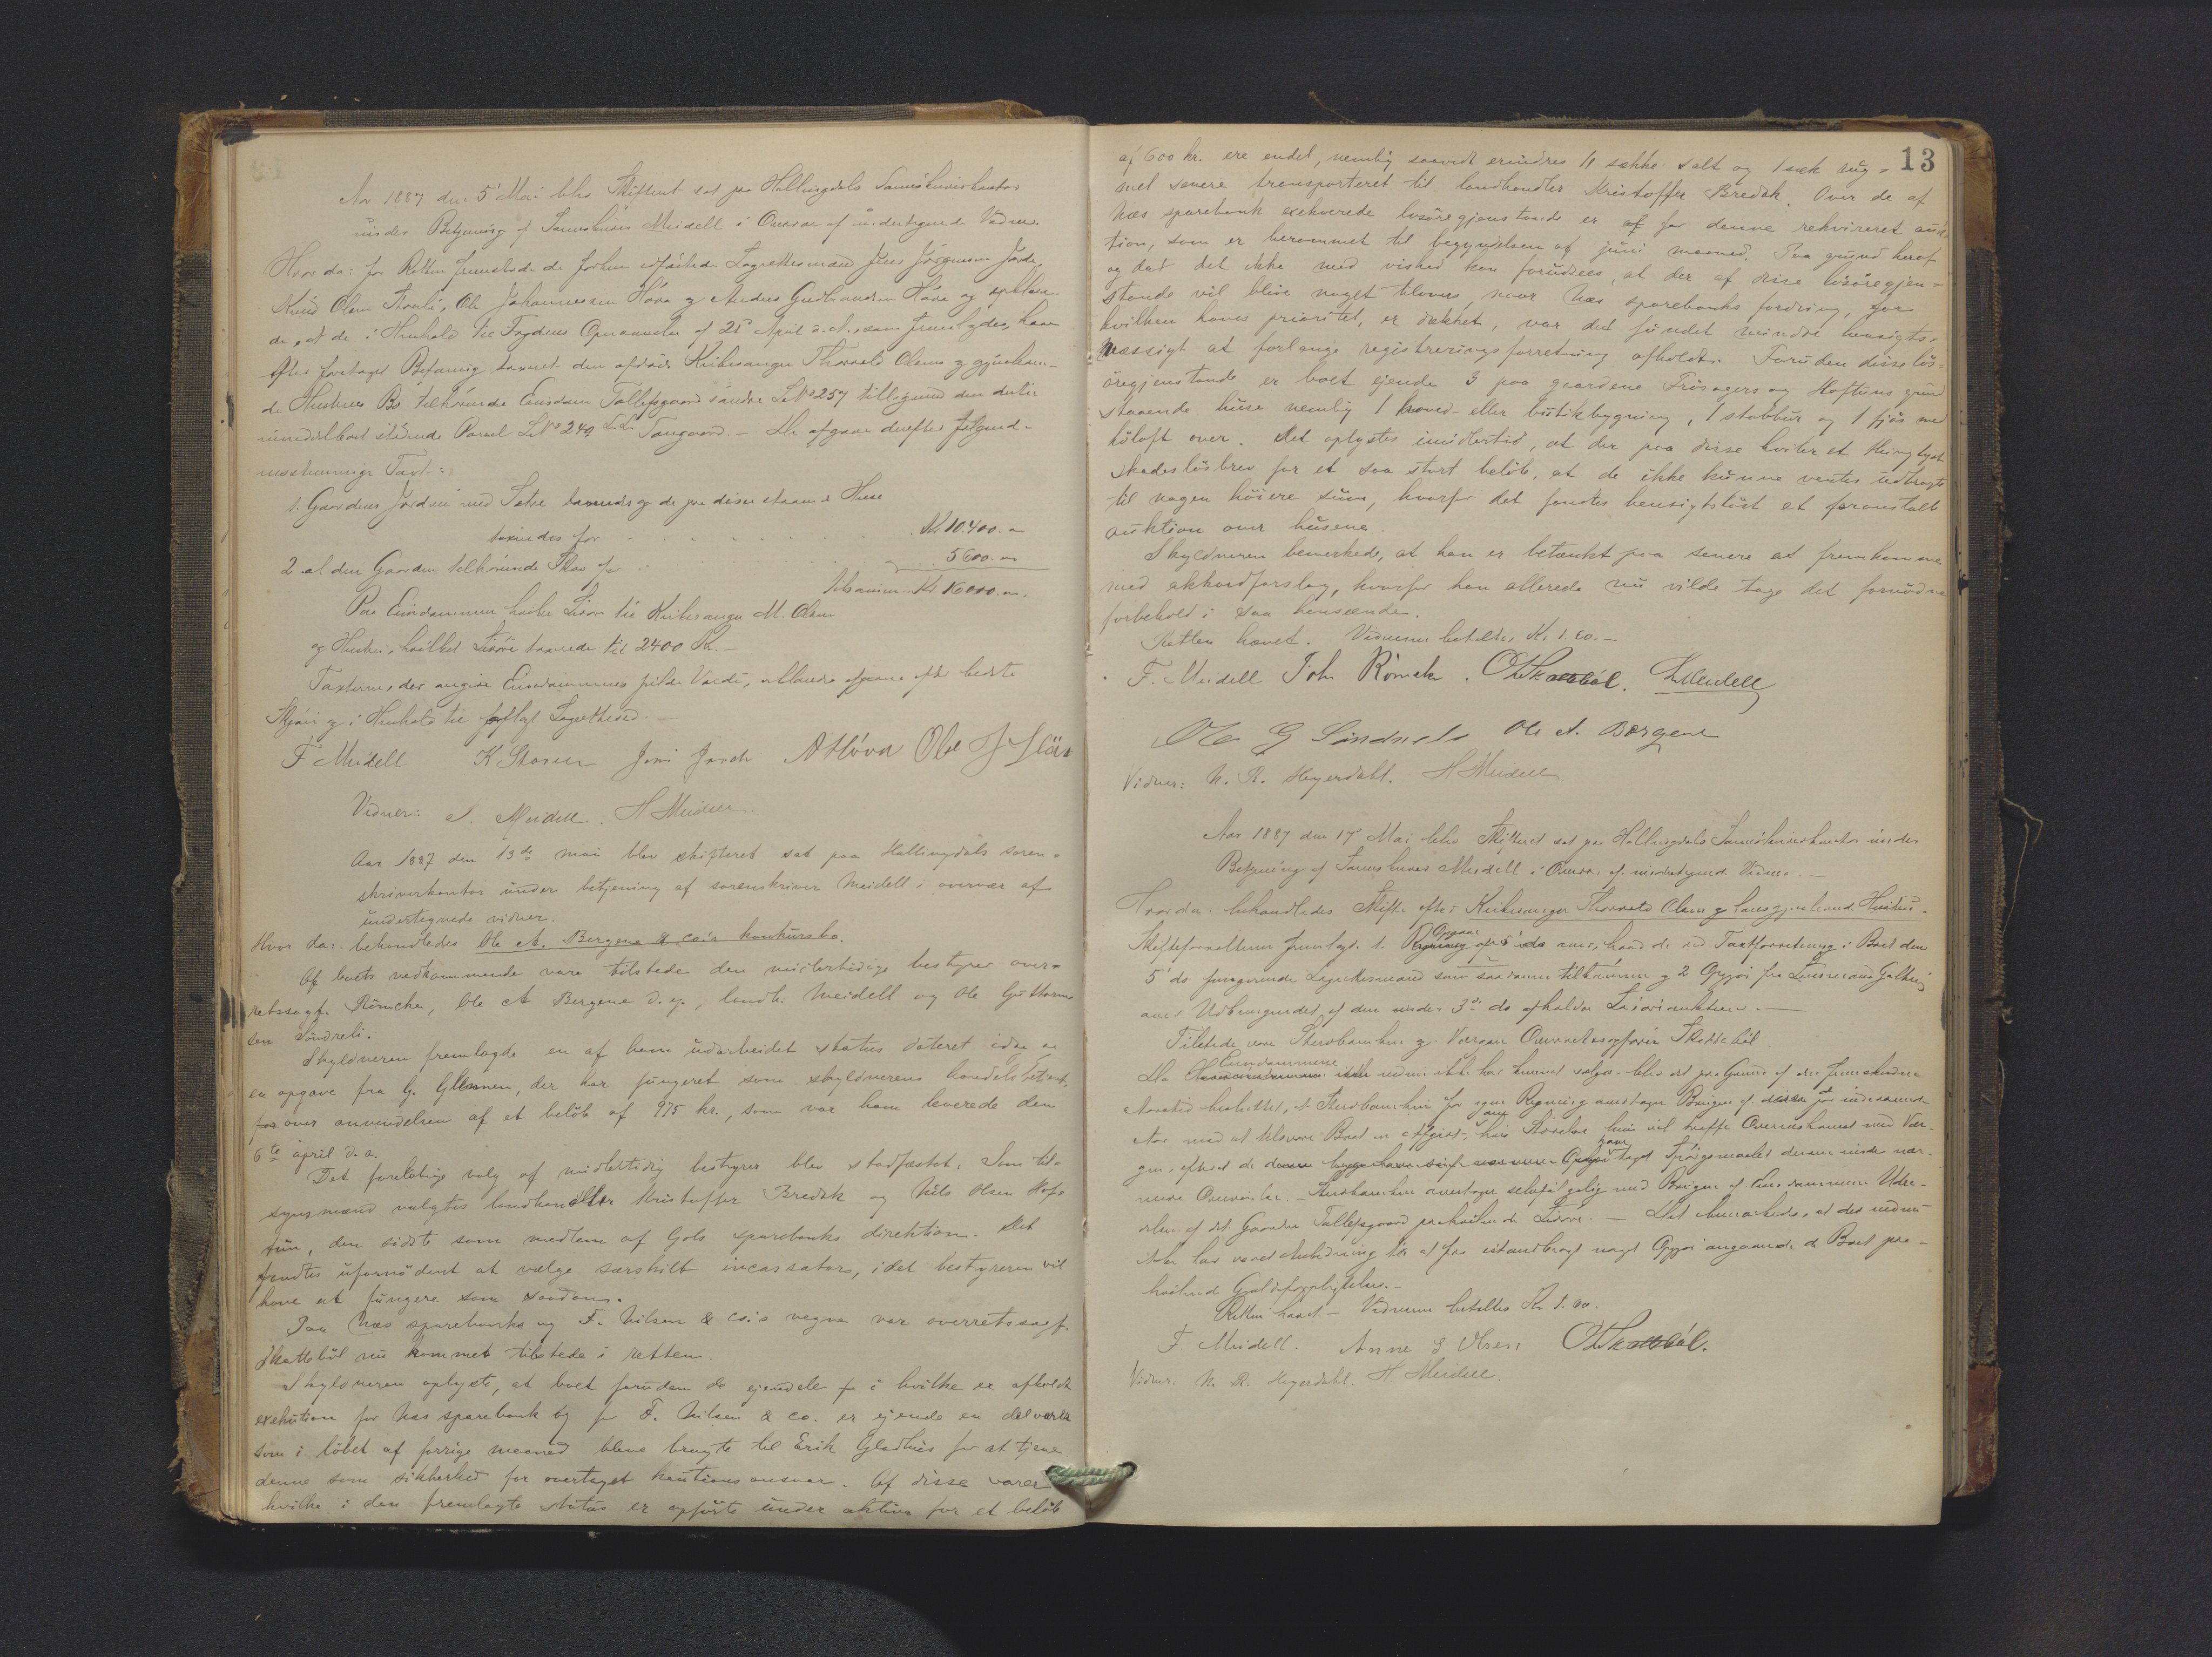 Aar 1887 den 5' Mai blev Skifteret sat paa Hallingdals Sorenskriverkontor
under Betjening af Sorenskriver Meidell i Overvær af undertegnede Vidner.
Hvor da: for Retten fremstode de forhen edfæstede Lagrettesmænd Jens Jörgensen Jorde,
Knud Olsen, Ole Johannessen Höva og Andres Gudbrandsen Höva og erklære-
de, at de i Henhold til Fogdens Opnævnelse af 21' April d. A., som fremlagdes, havde
efter foretaget Befaring taxeret den afdöde Kirkesanger Thorvald Olsens og gjenleven-
de Hustrues Bo tilhörende Eiendom Tollefsgaard söndre LN° 257 tilligemed den dertil
umiddelbart stödende Parcel LN° 249 Tungaard. — De afgave derefter fölgende
eenstemmige Taxt:
1. Gaardens Jordvei med Sætre samt de paa disse staaende Huse
taxeredes for . . . . Kr 10.400. "
2. al den Gaarden tilhörende Skov for . . . . 5600. "
tilsammen Kr 16000. "
Paa Eiendommen hviler Livöre til Kirkesanger M. Olsen
og Hustru, hvilket Livöre taxerede til 2400 Kr. —
Taxterne, der angive Eiendommenes fulde Værdi, erklæredes afgivne efter bedste
Skjön og i Henhold til aflagt Lagretteseed. —
F Meidell K Jens Jorde A Höva Ole J Höva
Vidner: S. Meidell. H Meidell.
Aar 1887 den 13de mai blev skifteret sat paa Hallingdals soren-
skriverkontor under betjening af sorenskriver Meidell i overvær af
undertegnede vidner.
Hvor da: behandledes Ole A. Bergene & co.'s konkursbo.
Af boets vedkommende vare tilstede den midlertidige bestyrer over-
retssagf. Römcke, Ole A Bergene d. y., landh. Meidell og Ole Guttorm-
sen Söndreli.
Skyldneren fremlagde en af ham udarbeidet status dateret idag og
en opgave fra G. Glemmen, der har fungeret som skyldnerens handelsbetjent,
for over anvendelsen af et belöb af 975 kr., som var ham leverede den
6te april d. a.
Det forelöbige valg af midlertidig bestyrer blev stadfæstet. Som til-
synsmænd valgtes landhandler Kristoffer Bredek og Nils Olsen Hof-
tun, den sidste som medlem af Gols sparebanks direktion. Det
fandtes ufornödent at vælge særskilt incassator, idet bestyreren vil
have at fungere som saadan.
Paa Næs sparebanks og F. Nilsen & co.'s vegne var overretssagf.
Skatteböl nu kommet tilstede i retten.
Skyldneren oplyste, at boet foruden de ejendele i hvilke er afholdt
exekution for Næs sparebank og for F. Nilsen & co. er ejende en del varer
som i löbet af forrige maaned bleve bragte til Erik Gladhus for at tjene
denne som sikkerhed for overtaget kautionsansvar. Af disse varer
hvilke i den fremlagte status er opförte under aktiva for et belöb
13
af 600 kr. ere endel, nemlig saavidt erindres 11 sække salt og 1 sæk rug-
mel senere transporteret til landhandler Kristoffer Bredek. Over de af
Næs sparebank exekverede lösöregjenstande er af for denne rekvireret auk-
tion, som er berammet til begyndelsen af juni maaned. Paa grund heraf
og da det ikke med vished kan forudsees, at der af disse lösöregjen-
stande vil blive noget tilovers, naar Næs sparebanks fordring, for
hvilken haves prioritet, er dækket, var det fundet mindre hensigts-
mæssigt at forlange registreringsforretning afholdt. Foruden disse lös-
öregjenstande er boet ejende 3 paa gaardene Trösagers og Hoftuns grund
staaende huse nemlig 1 hoved- eller butikbygning, 1 stabbur og 1 fjös med
höloft over. Det oplystes imidlertid, at der paa disse hviler et thinglyst
skadeslösbrev for et saa stort belöb, at de ikke kunne ventes udbragt
til nogen höiere sum, hvorfor det fandtes hensigtslöst at foranstalte
auktion over husene.
Skyldneren bemerkede, at han er betænkt paa senere at fremkomme
med akkordforslag, hvorfor han allerede nu vilde tage det fornödne
forbehold i saa henseende.
Retten hævet. Vidnerne betaltes Kr 1.60. —
F. Meidell Joh Römcke. O Skatteböl. Meidell
Ole G Söndreli Ole A. Bergene
Vidner: N. R. Heyerdahl. H Meidell.
Aar 1887 den 17' Mai blev Skifteret sat paa Hallingdals Sorenskriverkontor under
Betjening af Sorenskriver Meidell i Overvær af undertegnede Vidner. —
Hvor da: behandledes Skiftet efter Kirkesanger Thorvald Olsen og hans gjenlevende Hustru.
Skifteforvalteren fremlagde 1. Opgave over, hvad de ved Taxtforretning i Boet den
5' ds fungerende Lagrettesmænd som saadanne tilkommer og 2 Opgjör fra Lensmand Galtung
over Udbringendet af den under 3' ds afholdte Lösöreauktion. —
Tilstede var Sterbboenken og Værgen Overretssagförer Skatteböl.
Da Eiendommene endnu ikke har kunnet sælges blev det paa Grund af den fremskredne
Aarstid besluttet, at Sterbboenken for egen Regning overtager Brugen af disse for indeværende
Aar mod at tilsvare Boet en Afgivt, om hvis Störrelse hun vil træffe Overenskomst med Vær-
gen, efterat de have taget Spörgsmaalet derom under nær-
mere Overveielse. — Sterbboenken overtager selvfölgelig med Brugen af Eiendommene Udre-
delsen af det Gaarden Tollefsgaard paahvilende Livöre. — Det bemærkedes, at det endnu
ikke har været Anledning til at faa istandbragt noget Opgjör angaaende de Boet paa-
hvilende Gjeldsforpligtelser. —
Retten hævet — Vidnerne betaltes Kr 1.60.
F Meidell. Anne S Olsen O Skatteböl.
Vidner: N. R. Heyerdahl. H Meidell.